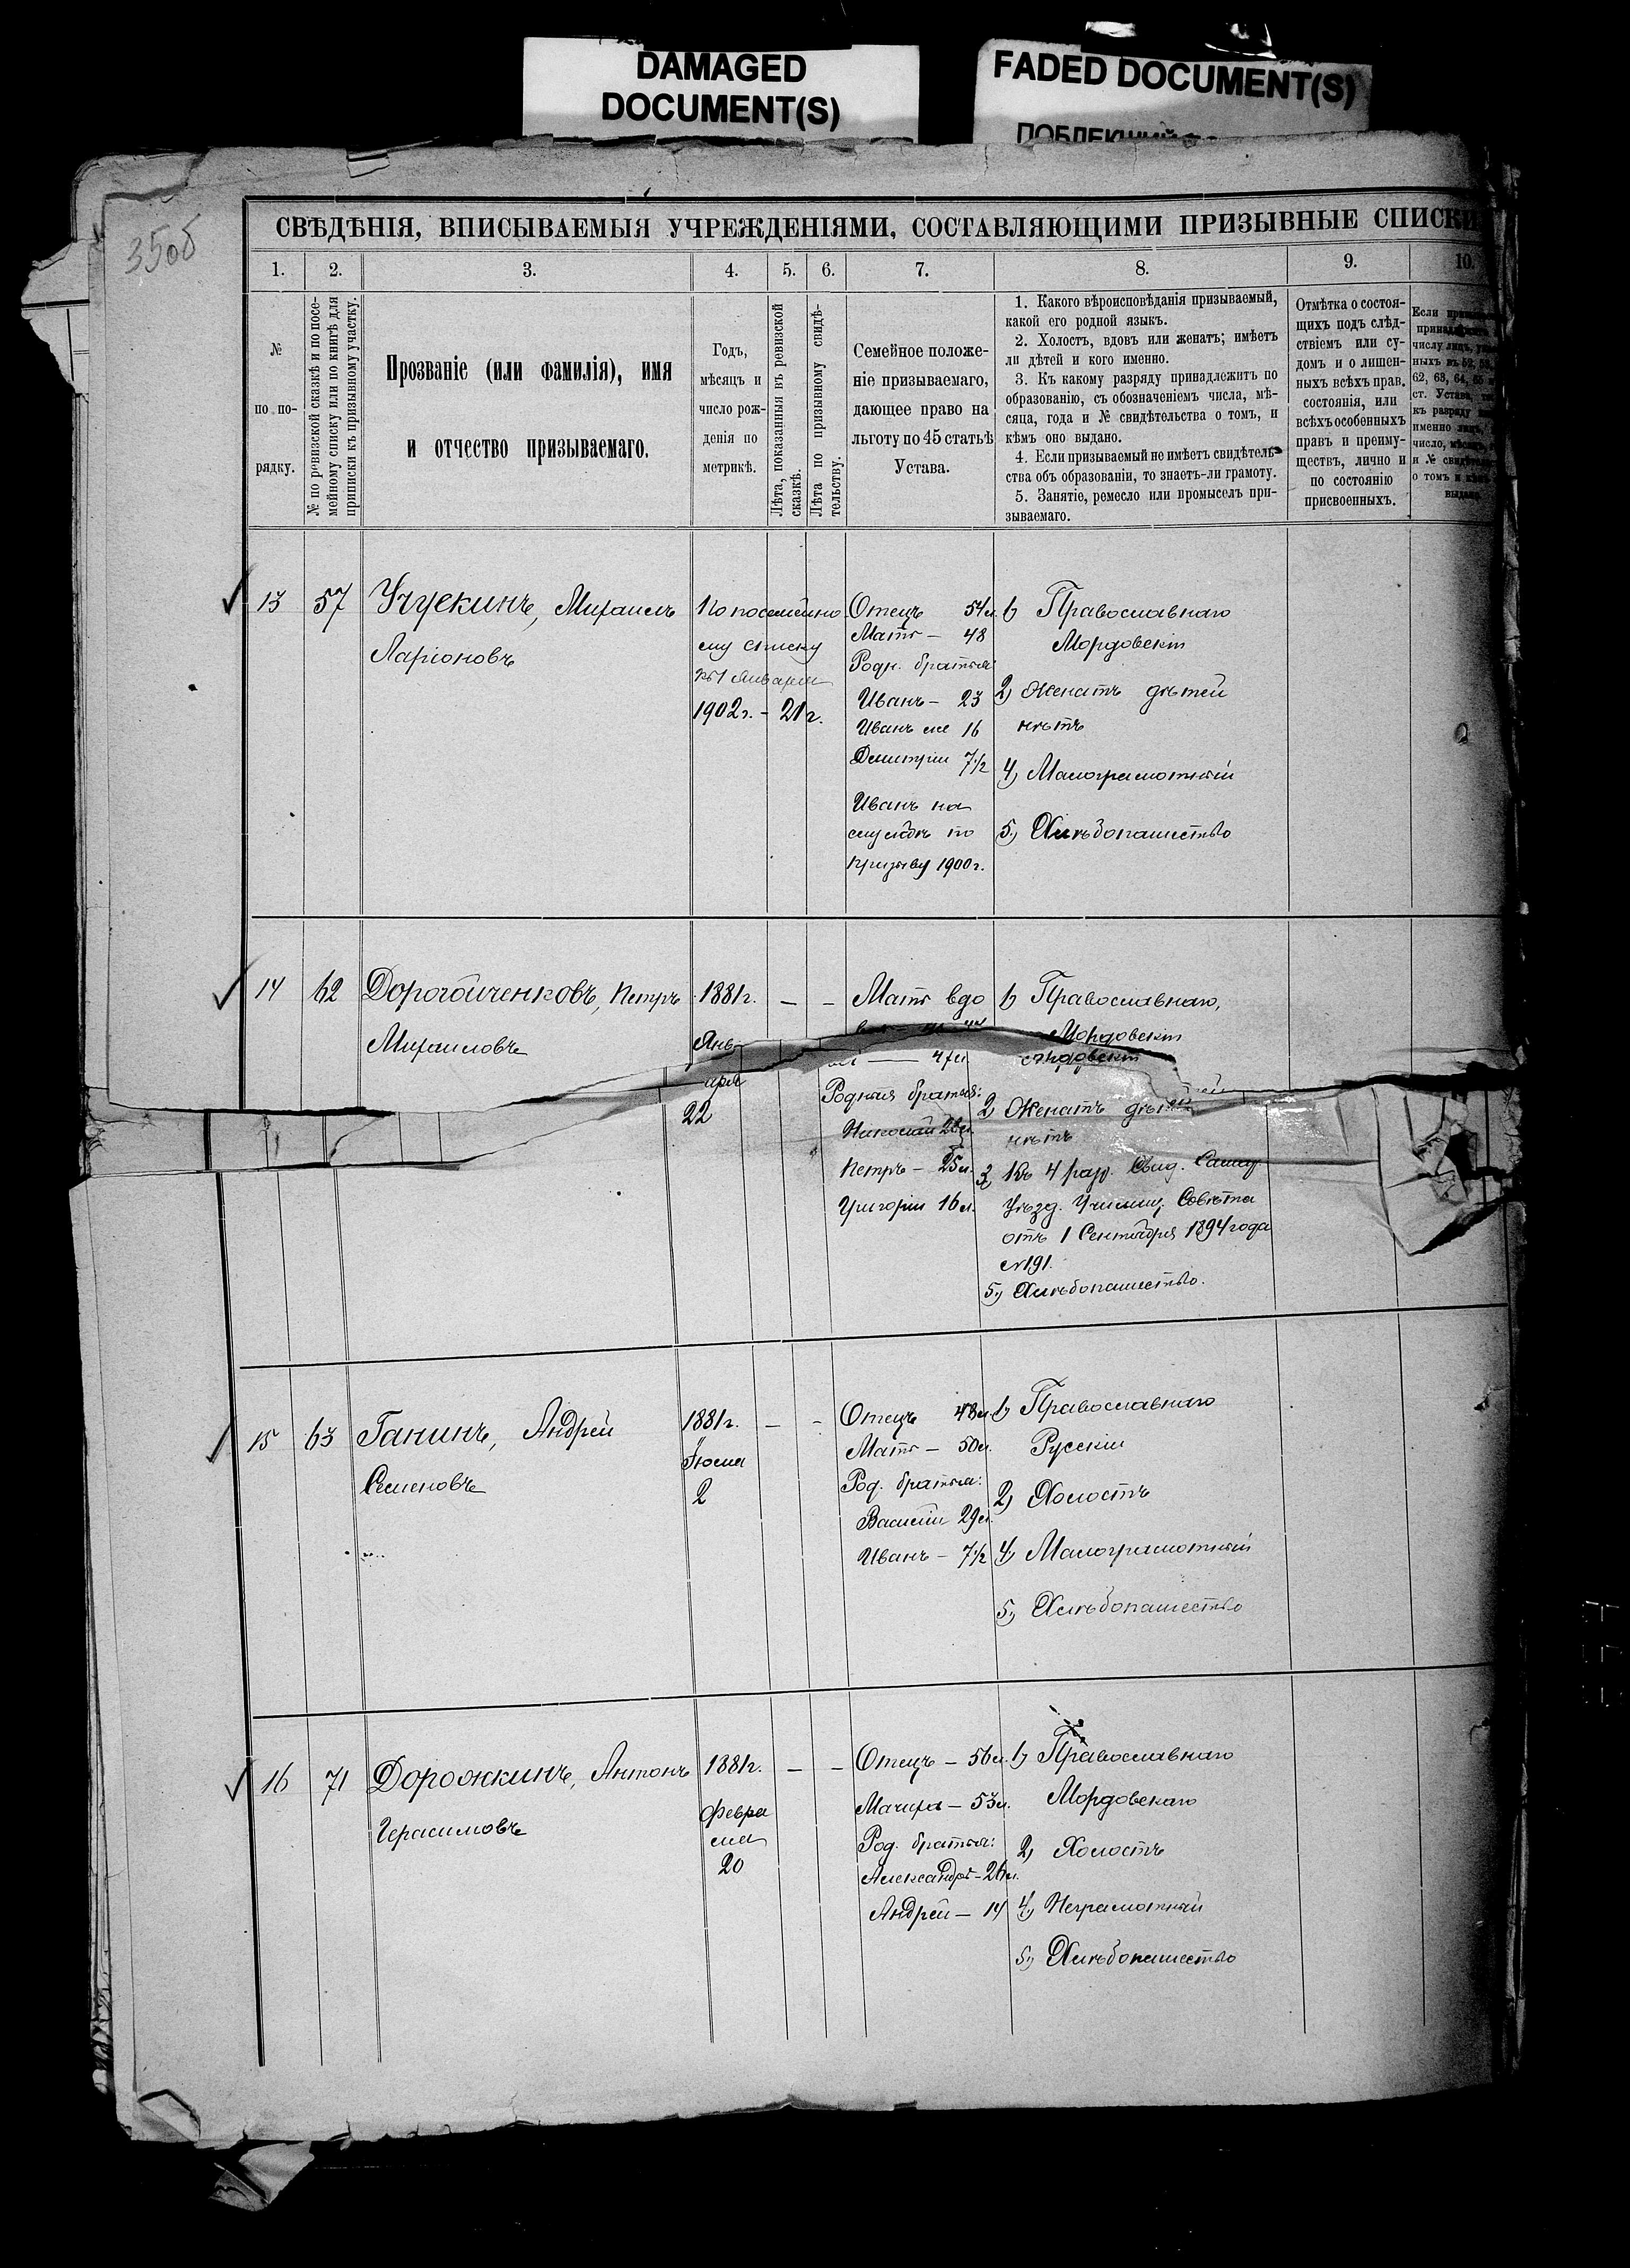 DAMAGED
DOCUMENT(S)
FADED DOCUMENT(S)
350б
СВѢДѢНІЯ, ВПИСЫВАЕМЫЯ УЧРЕЖДЕНІЯМИ, СОСТАВЛЯЮЩИМИ ПРИЗЫВНЫЕ СПИСКИ
1. 2. 3. 4. 5. 6. 7. 8. 9. 10.
№
по по-
рядку.
№ по ревизской сказкѣ и по посе-
мейному списку или по книгѣ для
приписки къ призывному участку.
Прозваніе (или фамилія), имя
и отчество призываемаго.
Годъ,
мѣсяцъ и
число рож-
денія по
метрикѣ.
Лѣта, показанныя въ ревизской
сказкѣ.
Лѣта по призывному свидѣ-
тельству.
Семейное положе-
ніе призываемаго,
дающее право на
льготу по 45 статьѣ
Устава.
1. Какого вѣроисповѣданія призываемый,
какой его родной языкъ.
2. Холостъ, вдовъ или женатъ; имѣетъ
ли дѣтей и кого именно.
3. Къ какому разряду принадлежитъ по
образованію, съ обозначеніемъ числа, мѣ-
сяца, года и № свидѣтельства о томъ, и
кѣмъ оно выдано.
4. Если призываемый не имѣетъ свидѣтель-
ства объ образованіи, то знаетъ-ли грамоту.
5. Занятіе, ремесло или промыселъ при-
зываемаго.
Отмѣтка о состоя-
щихъ подъ слѣд-
ствіемъ или су-
домъ и о лишен-
ныхъ всѣхъ прав.
состоянія, или
всѣхъ особенныхъ
правъ и преиму-
ществъ, лично и
по состоянію
присвоенныхъ.
Если
числу лицъ,
ныхъ въ
62, 63, 64,
ст. Устава,
къ разряду
именно
число,
и №
о томъ и
13 57 Учуекинъ, Михаилъ
Ларіоновъ
По посемейно
му списку
къ 1 Января
1902г. - 21г.
Отецъ 54л.
Мать - 48
Родн. братья
Иванъ - 23
Иванъ же 16
Димитрій 7½
Иванъ на
службѣ по
призыву 1900г.
1) Православнаго
Мордовскій
2) Женатъ дѣтей
нѣтъ
4) Малограмотный
5) Хлѣбопашество
14 62 Дорогойченковъ, Петръ
Михаиловъ
1881г. - -
Янв-
аря
22
Мать вдо
47л
Родныя братья:
Николай 28л.
Петръ - 25л.
Григорій 16л.
1) Православнаго,
Мордовскій
2) Женатъ дѣтей
нѣтъ
3) Къ 4 раз. Свид. Самар
Уѣзд. Училищ. Совѣта
отъ 1 Сентября 1894 года
№191.
5) Хлѣбопашество.
15 63 Ганинъ, Андрей
Семеновъ
1881г. - -
Іюля
2
Отецъ 48л
Мать - 50л.
Род. братья:
Василій 29л.
Иванъ - 7½
1) Православнаго
Русскій
2) Холостъ
4) Малограмотный
5) Хлѣбопашество
16 71 Дорожкинъ, Антонъ
Герасимовъ
1881г. - -
Февра
ля
20
Отецъ - 56л.
Мачиха - 53л.
Род. братья:
Александръ - 26л.
Андрей - 14
1) Православнаго
Мордовскаго
2) Холостъ
4) Неграмотный
5) Хлѣбопашество